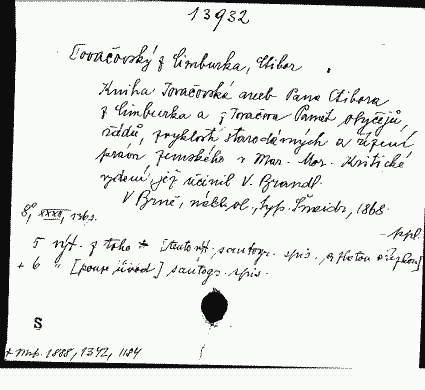 13932
Tovačovský z Cimburka, Ctibor
Kniha Tovačovská aneb Pana Ctibora
z Cimburka a z Tovačova Paměť obyčejů,
řádů, zvyklostí starodávných a řízení
práva zemského v Mar. Mor. Kritické
vydání, jež učinil V. Brandl.
V Brně, nákl. vl., typ. Šnaidr, 1868.
8°, XXXI, 136 s. ppl.
5 výt. z toho [tento výt. s autogr. spis.
+ 6 " [pouze úvod] s autogr. spis.
S
1342, 1184